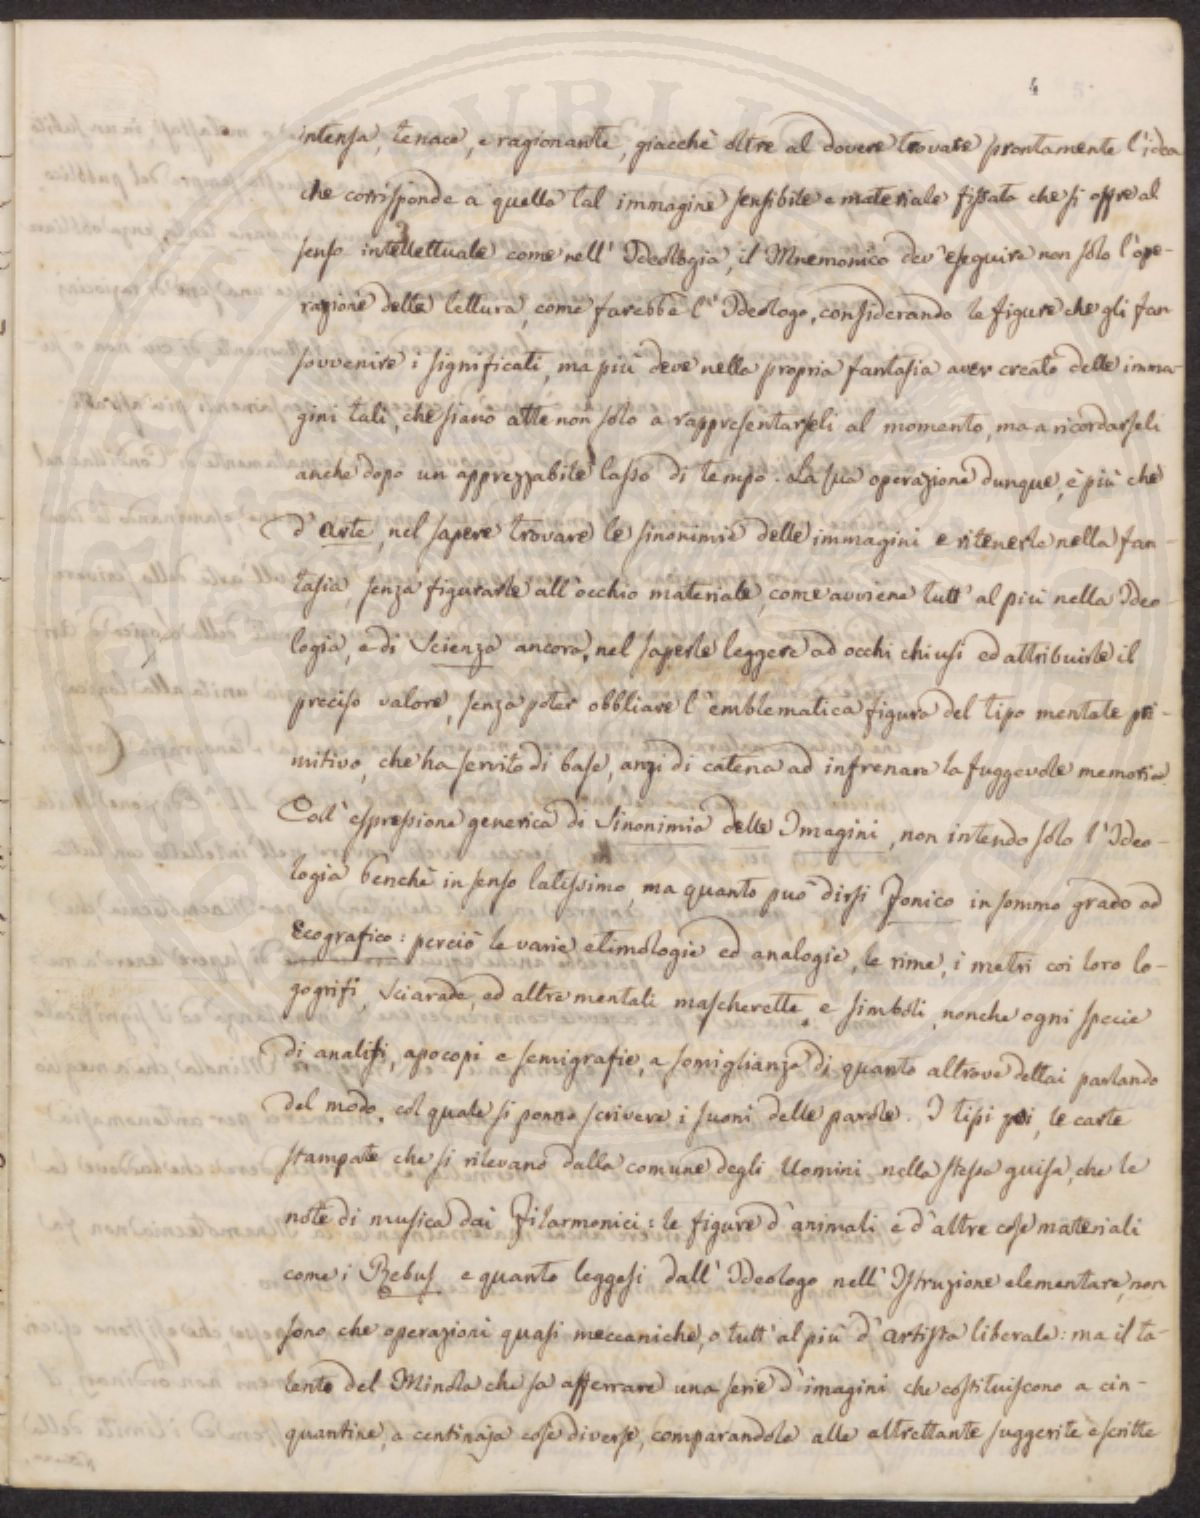 4
intensa, tenace, e ragionante, giacchè oltre al dovere trovare prontamente l'idea
che corrisponde a quella tal immagine sensibile e materiale fissata che si offre al
senso intellettuale come nell' Ideologia, il Mnemonico dev' eseguire non solo l'ope-
razione della lettura, come farebbe l' Ideologo, considerando le figure che gli fan
sovvenire i significati, ma più deve nella propria fantasia aver creato delle imma-
gini tali, che siano atte non solo a rappresentarseli al momento, ma a ricordarseli
anche dopo un apprezzabile lasso di tempo. La sua operazione dunque, è più che
d' arte, nel sapere trovare le sinonimie delle immagini e ritenerle nella fan-
tasia, senza figurarle all' occhio materiale, come avviene tutt' al più nella Ideo-
logia, e di Scienza ancora, nel saperle leggere ad occhi chiusi ed attribuirle il
preciso valore, senza poter obbliare l' emblematica figura del tipo mentale pri-
mitivo, che ha servito di base, anzi di catena ad infrenare la fuggevole memoria.
Coll' espressione generica di Sinonimia delle Imagini, non intendo solo l' Ideo-
logia benchè in senso latissimo, ma quanto può dirsi Fonico in sommo grado od
Ecografico: perciò le varie etimologie ed analogie, le rime, i metri coi loro lo-
gogrifi, Sciarade, ed altre mentali mascherette e simboli, nonche ogni specie
di analisi, apocopi e semigrafie, a somiglianza di quanto altrove dettai parlando
del modo, col quale si ponno scrivere i suoni delle parole. I tipi poi, le carte
stampate che si rilevano dalla comune degli Uomini nella stessa guisa, che le
note di musica dai Filarmonici: le figure d' animali e d' altre cose materiali
come i Rebus e quanto leggesi dall' Ideologo nell' Istruzione elementare, non
sono che operazioni quasi meccaniche, o tutt' al più d' artista liberale: ma il ta-
lento del Minola che sa afferrare una serie d' imagini che costituiscono a cin-
quantine, a centinaja cose diverse, comparandole alle altrettante suggerite e scritte